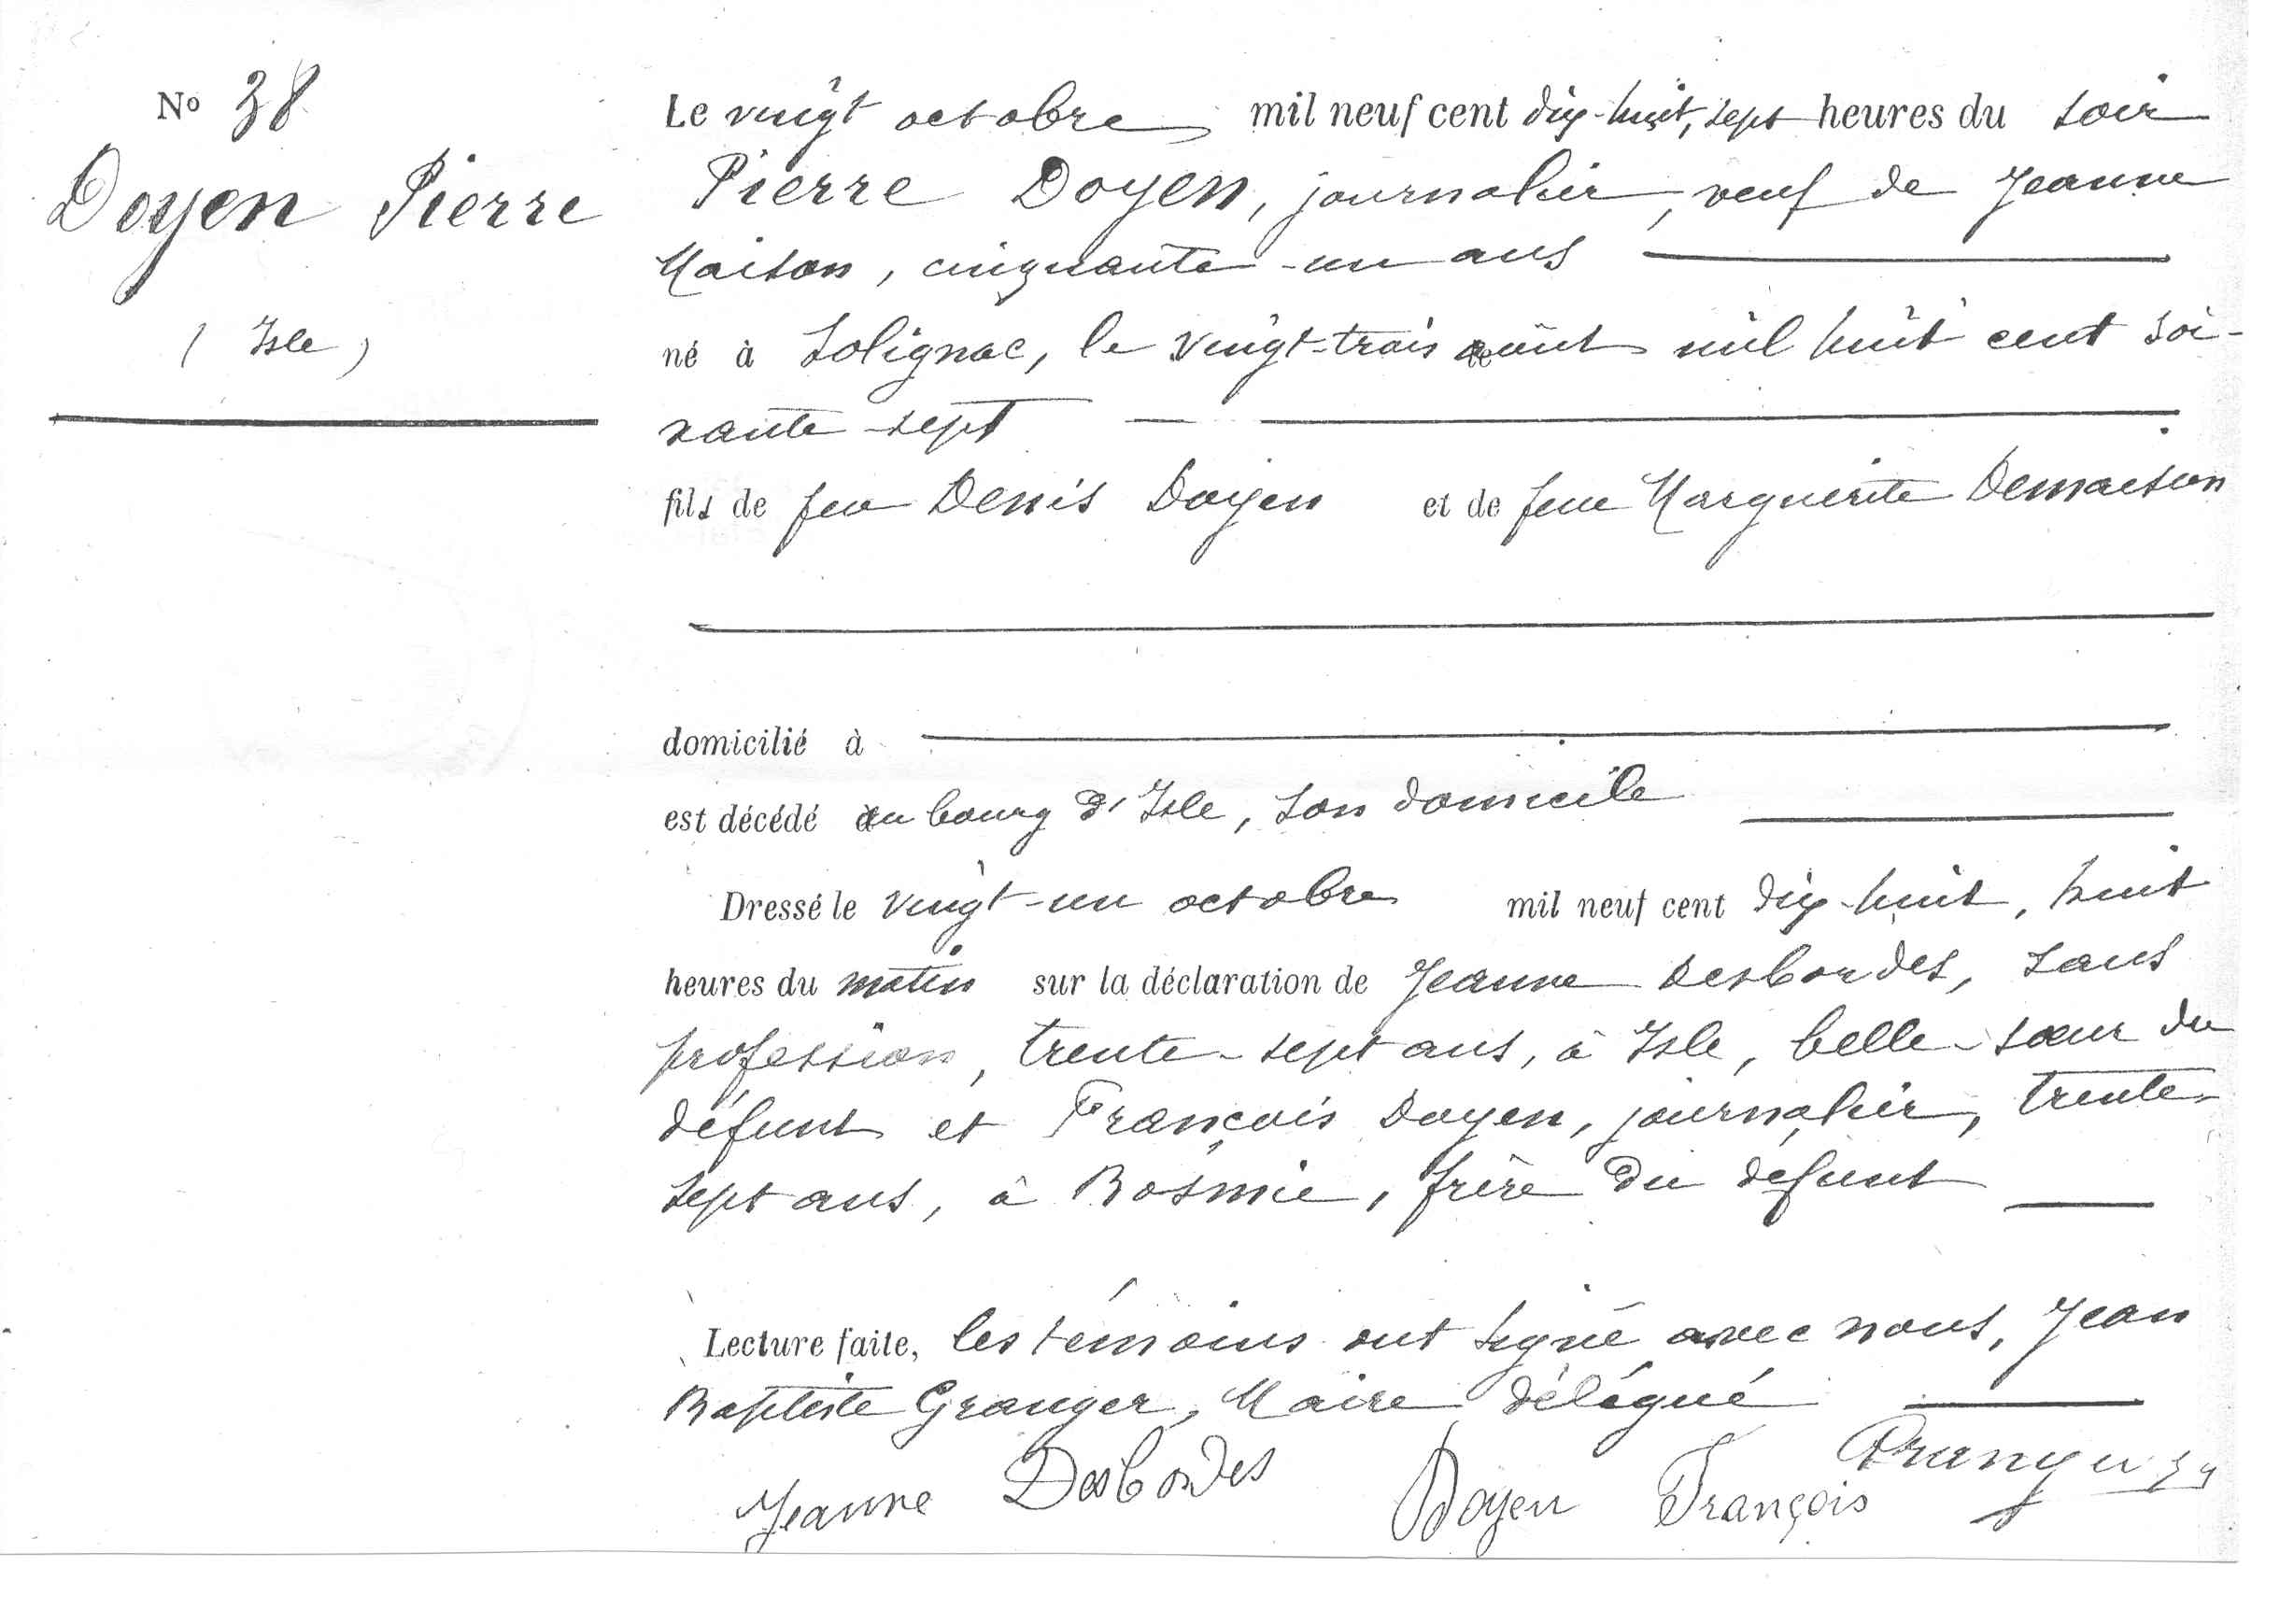 No 38
Doyen Pierre
(Isle)
Le vingt octobre mil neuf cent dix-huit, sept heures du soir
Pierre Doyen, journalier, veuf de Jeanne
Maison, cinquante-un ans
né à Solignac, le vingt-trois août mil huit cent soi-
xante-sept
fils de feu Denis Doyen et de feue Marguerite Demaison
domicilié à
est décédé au bourg d'Isle, son domicile
Dressé le vingt-un octobre mil neuf cent dix-huit, huit
heures du matin sur la déclaration de Jeanne Desbordes, sans
profession, trente-sept ans, à Isle, belle-sœur du
défunt et François Doyen, journalier, trente-
sept ans, à Bosmie, frère du défunt
Lecture faite, les témoins ont signé avec nous, Jean
Baptiste Granger, Maire délégué
Jeanne Desbordes Doyen François Granger